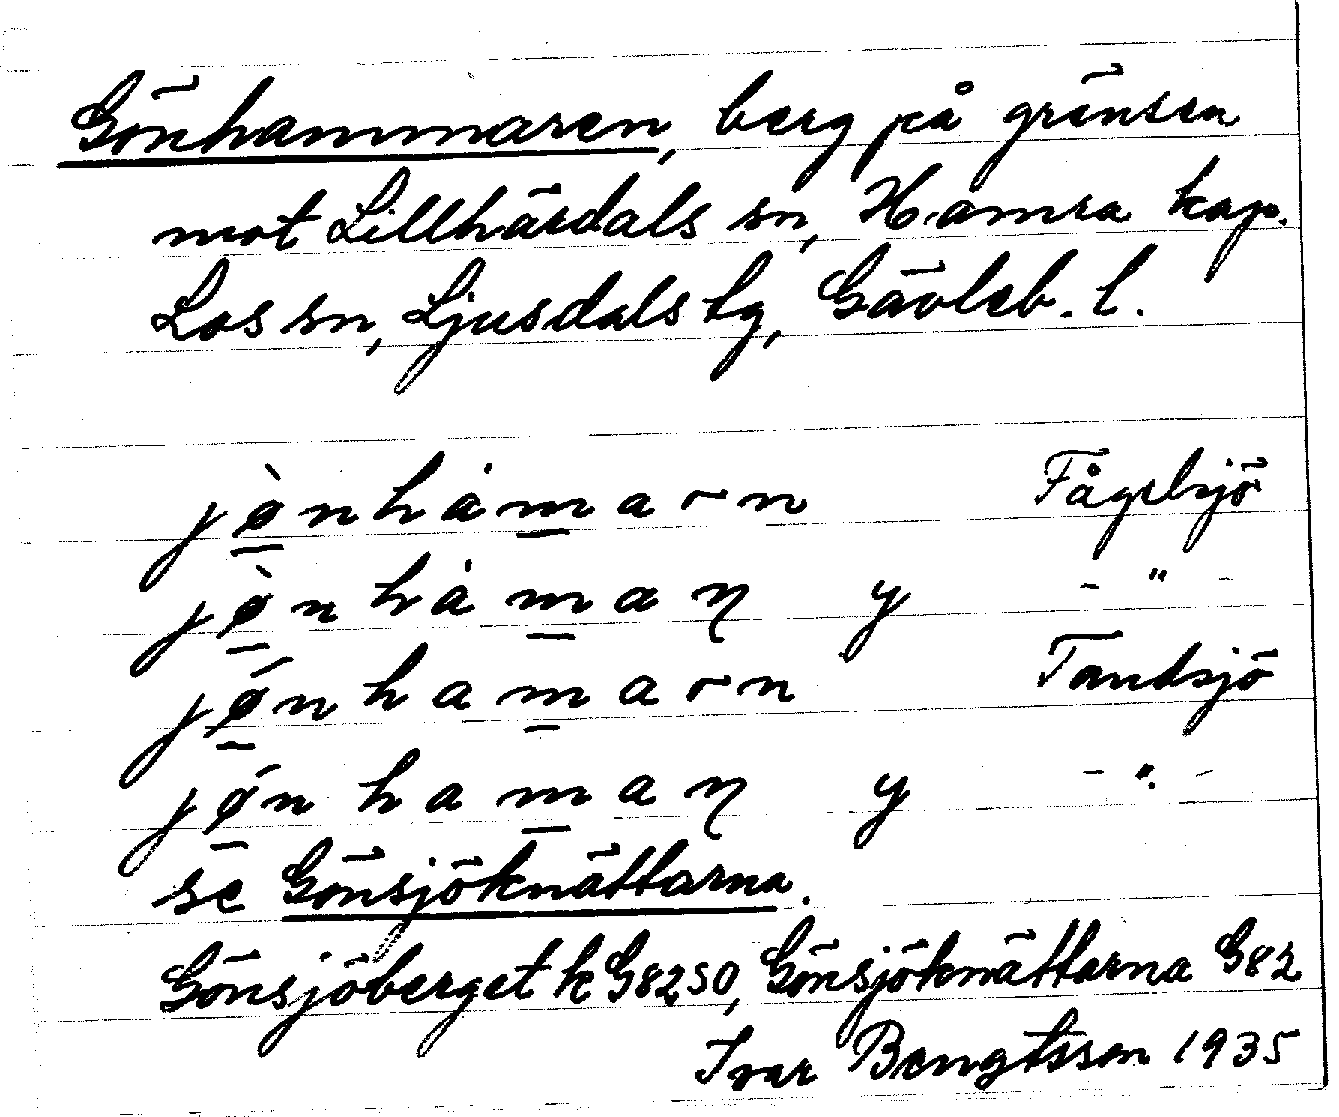 Gönhammaren, berg på gränsen
mot Lillhärdals sn, Hamra kap.
Los sn, Ljusdals tg, Gävleb. l.
jø̀nhȧmarn Fågelsjö
jø̀nhȧmaɳ y - " -
jǿnhamarn Tandsjö
jǿnhamaɳ y - " -
se Gönsjöknättarna.
Gönsjöberget k G82SO, Gönsjöknättarna G82
Ivar Bengtsson 1935